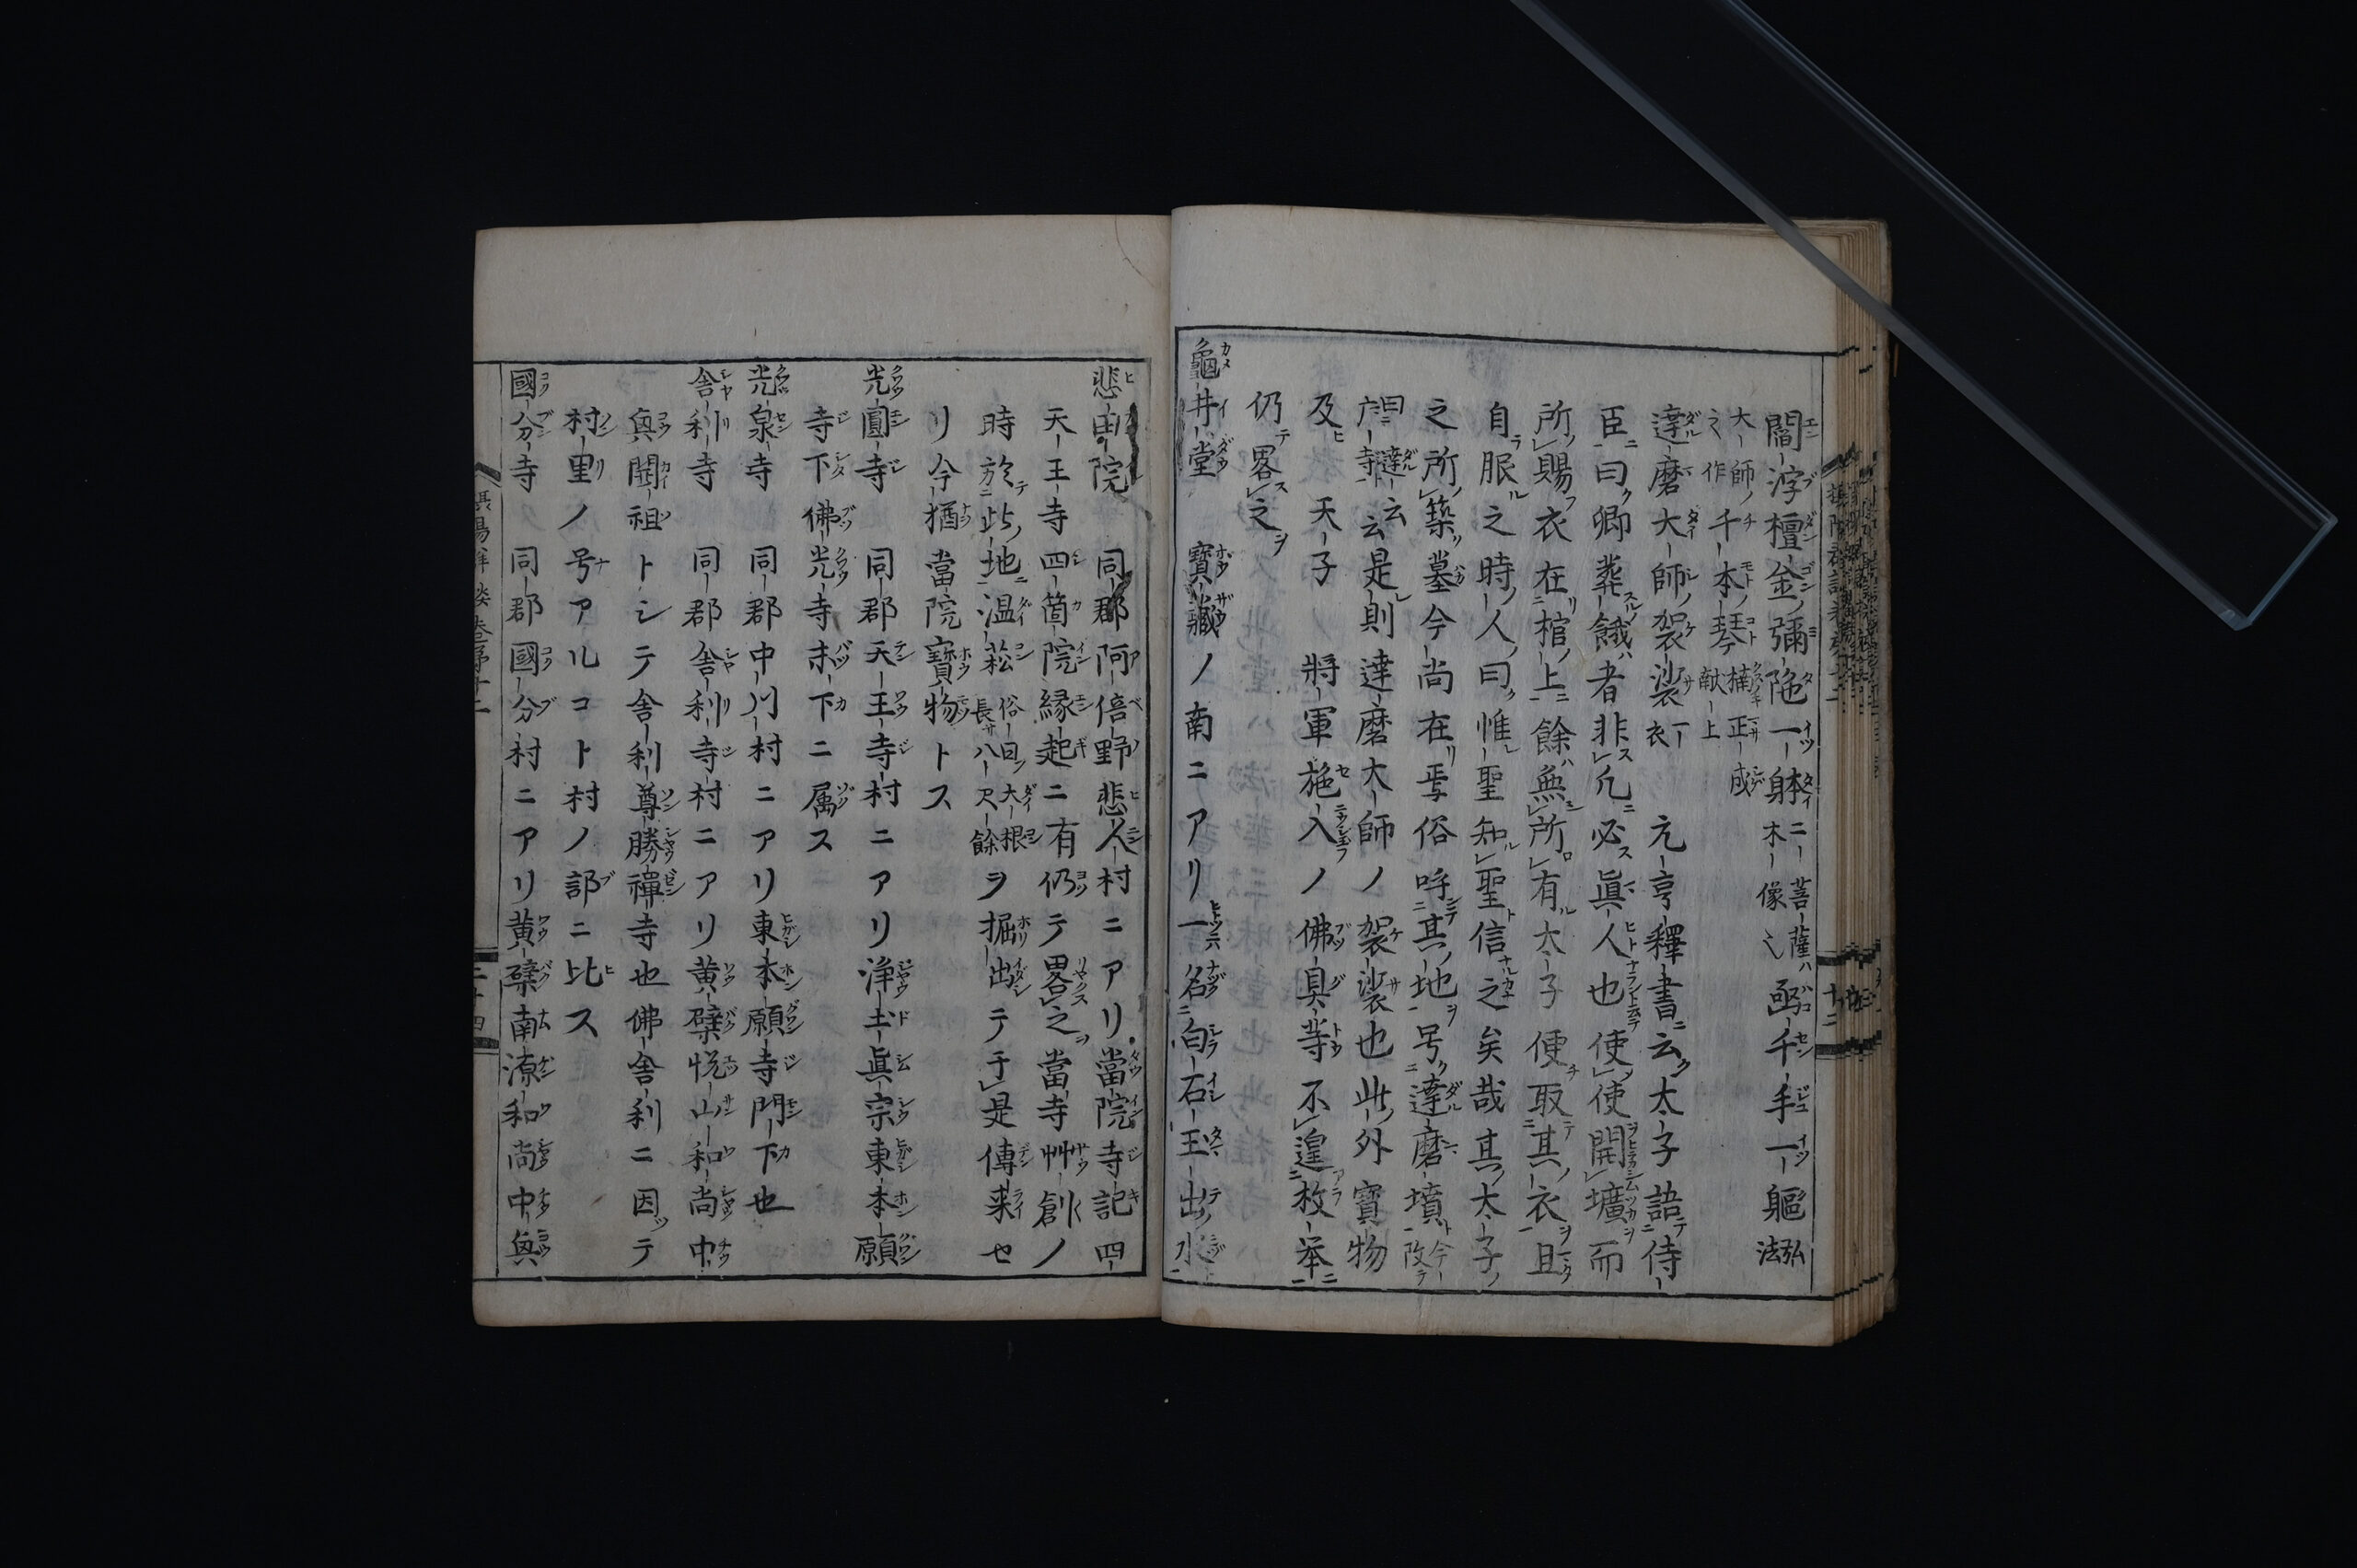 閻浮檀金ノ彌陁一躰身 二菩薩ハ木像 凾千手一軀 弘法
大師ノ之作 千本ノ琴 楠正成献上
達磨大師ノ袈裟一衣 元亨釋書ニ云ク太子語テ侍
臣ニ曰ク卿葬ル餓者ハ非ス凡ニ必ス眞人也使使開壙而
所ノ賜フ衣在リ棺ノ上ニ餘ハ無シ所ロ有ル太子便チ取テ其ノ衣ヲ且
自ラ服ル之時ノ人ノ曰ク惟レ聖知ル聖ト信ナルカナ之矣哉其ノ太子ノ
之所ノ築ク墓今尚在リ焉俗呼テ其ノ地ヲ号ク達磨墳ト 今改テ
曰達磨寺ト云云是レ則達磨大師ノ袈裟也此ノ外寳物
及ヒ 天子 將軍施入ノ佛具等不遑枚挙ニ
仍テ畧ス之ヲ
龜井堂 寳藏ノ南ニアリ一名白石玉出ノ水
悲田院 同郡阿倍野悲人村ニアリ當院寺記四
天王寺四箇院縁起ニ有仍テ畧ス之ヲ當寺艸創ノ
時於テ此ノ地ニ温菘 俗ニ曰大根長サ八尺餘 ヲ掘出テ于是傳来セ
リ今猶當院寳物トス
光圓寺 同郡天王寺村ニアリ浄土眞宗東本願
寺下佛光寺末下ニ属ス
光泉寺 同郡中川村ニアリ東本願寺門下也
舎利寺 同郡舎利寺村ニアリ黄檗悦山和尚中
興開祖トシテ舎利尊勝禪寺也佛舎利ニ因ッテ
村里ノ号アルコト村ノ部ニ比ス
國分寺 同郡國分村ニアリ黄檗南源和尚中興